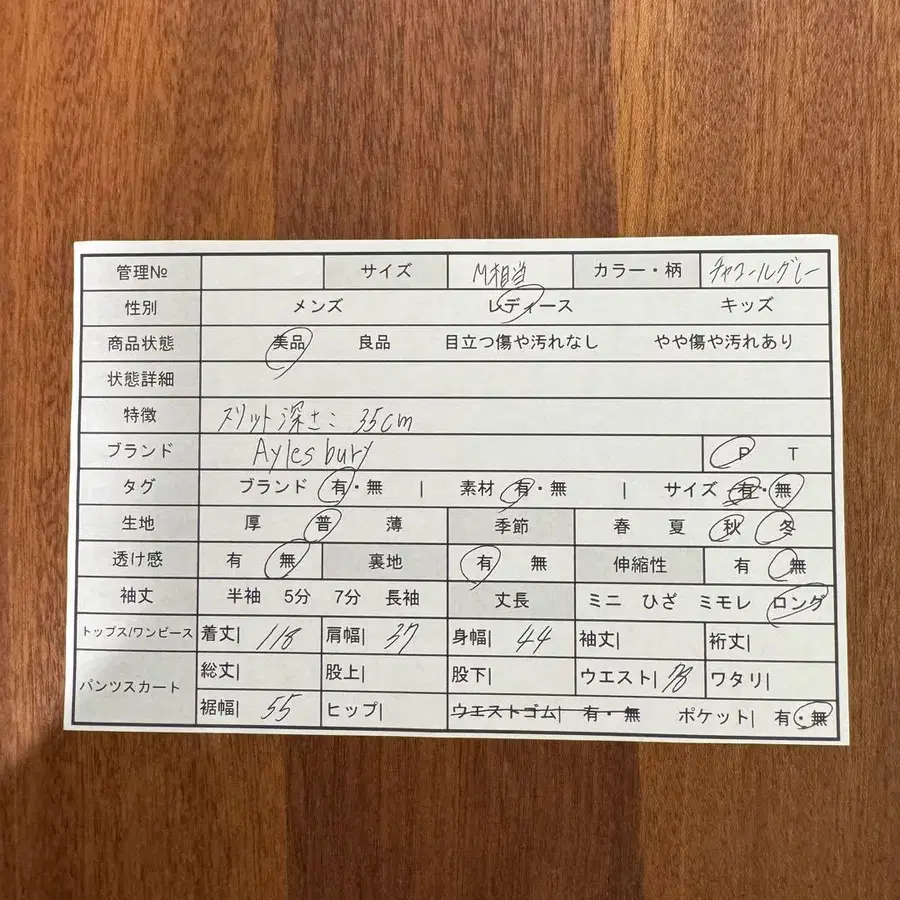 管理№ サイズ M相当 カラー・柄 チャコールグレー
性別 メンズ レディース キッズ
商品状態 美品 良品 目立つ傷や汚れなし やや傷や汚れあり
状態詳細
特徴 スリット深さ: 35cm
ブランド Aylesbury P T
タグ ブランド 有・無 | 素材 有・無 | サイズ 有・無
生地 厚 普 薄 季節 春 夏 秋 冬
透け感 有 無 裏地 有 無 伸縮性 有 無
袖丈 半袖 5分 7分 長袖 丈長 ミニ ひざ ミモレ ロング
トップス/ワンピース 着丈| 118 肩幅| 37 身幅| 44 袖丈| 裄丈|
パンツスカート 総丈| 股上| 股下| ウエスト| 78 ワタリ|
裾幅| 55 ヒップ| ウエストゴム| 有・無 ポケット| 有・無